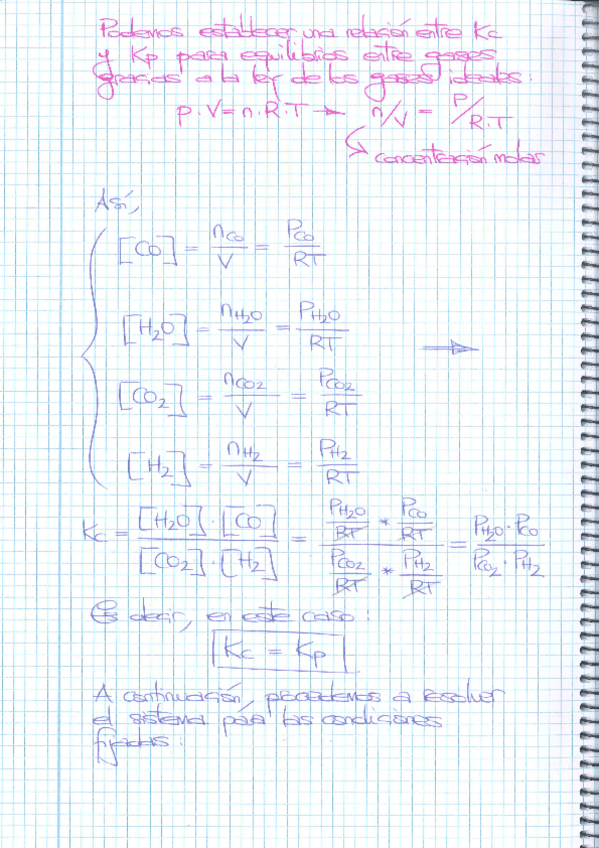 Podemos establecer una relación entre Kc
y Kp para equilibrios entre gases
gracias a la ley de los gases ideales:
p·V = n·R·T → n/V = P/R·T
↳ concentración molar
Así,
[CO] = nCO/V = PCO/RT
[H₂O] = nH₂O/V = PH₂O/RT →
[CO₂] = nCO₂/V = PCO₂/RT
[H₂] = nH₂/V = PH₂/RT
Kc = [H₂O]·[CO]/[CO₂]·[H₂] = (PH₂O/RT * PCO/RT)/(PCO₂/RT * PH₂/RT) = PH₂O·PCO/PCO₂·PH₂
Es decir, en este caso:
Kc = Kp
A continuación, procedemos a resolver
el sistema para las condiciones
fijadas: